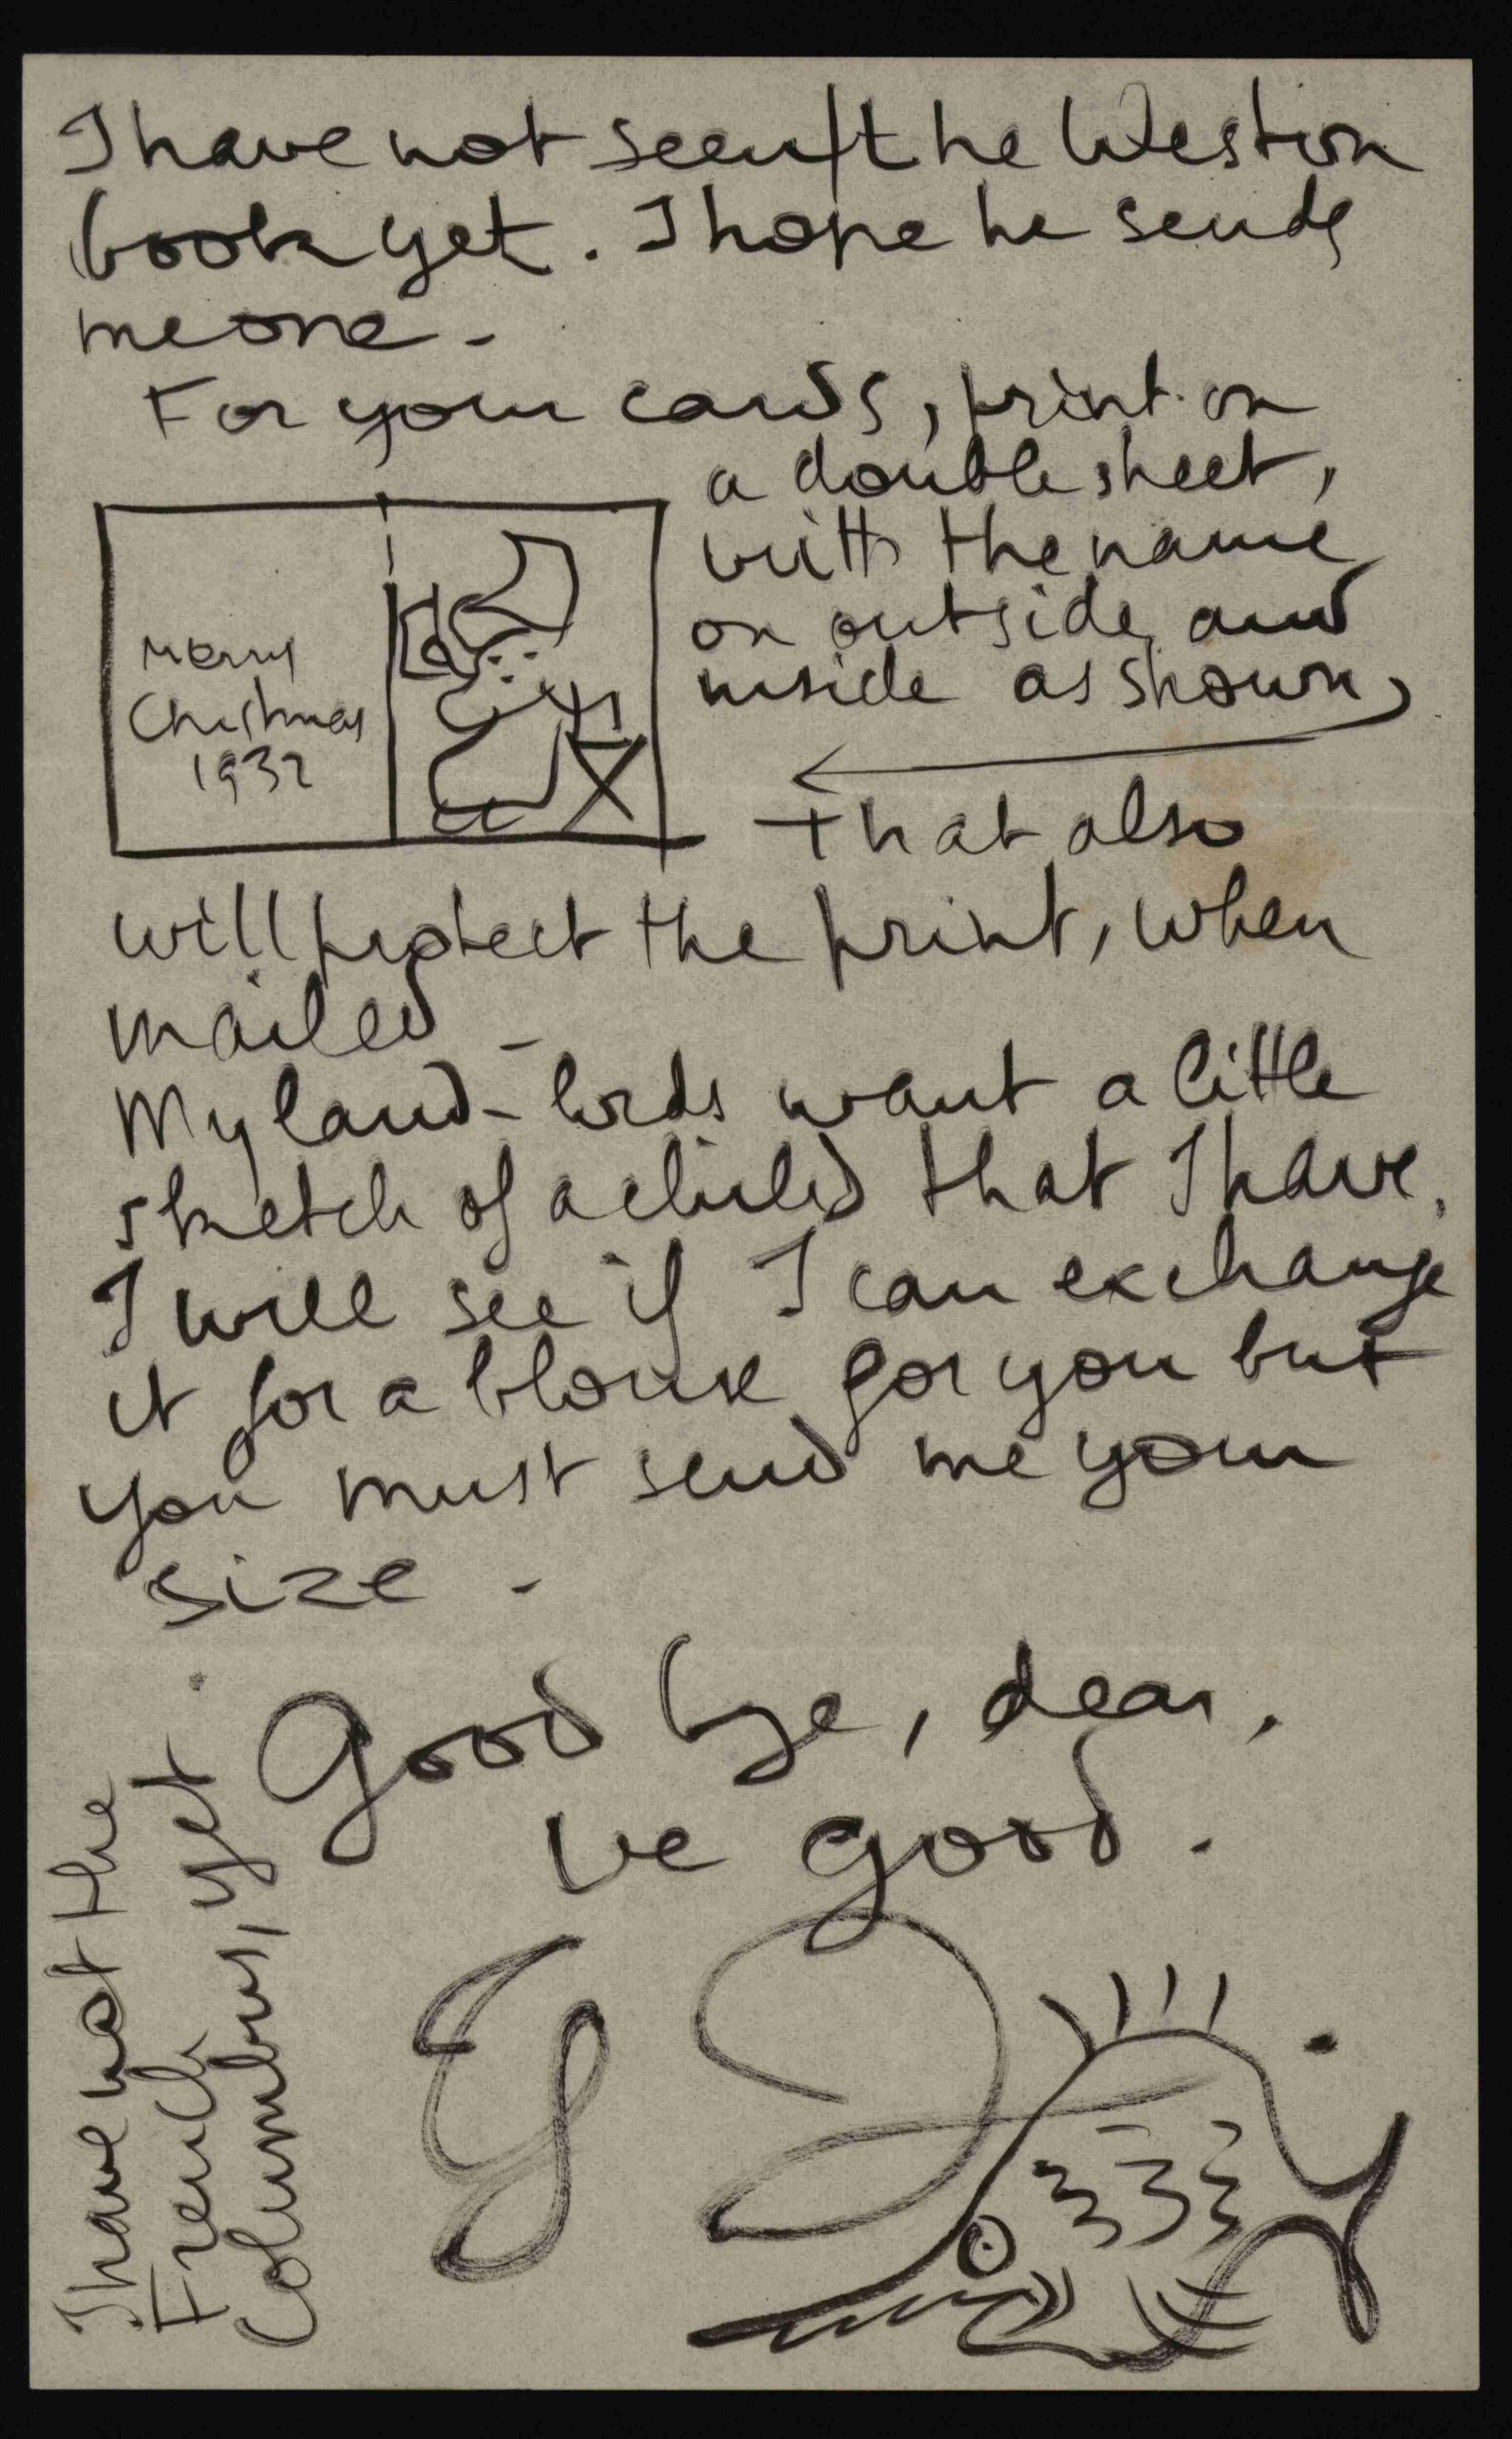 I have not seen the Weston
book yet. I hope he sends
me one -
For your cards, print on
a double sheet,
with the name
on outside, and
inside as shown,
Merry
Christmas
1932
that also
will protect the print, when
mailed -
My land-lords want a little
sketch of a child that I have.
I will see if I can exchange
it for a blouse for you but
you must send me your
size -
Good bye, dear,
be good.
I have not the
French
Columbus, yet.